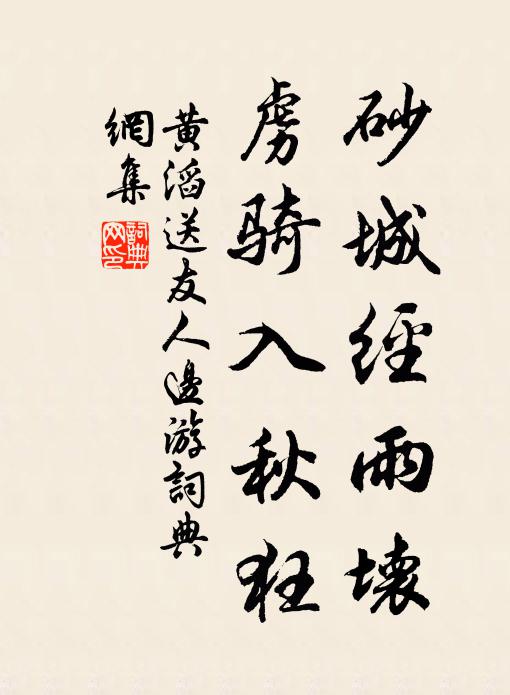 砂城經雨壞
虜騎入秋狂
黃滔送友人邊游詞典
網集
詞典
网印